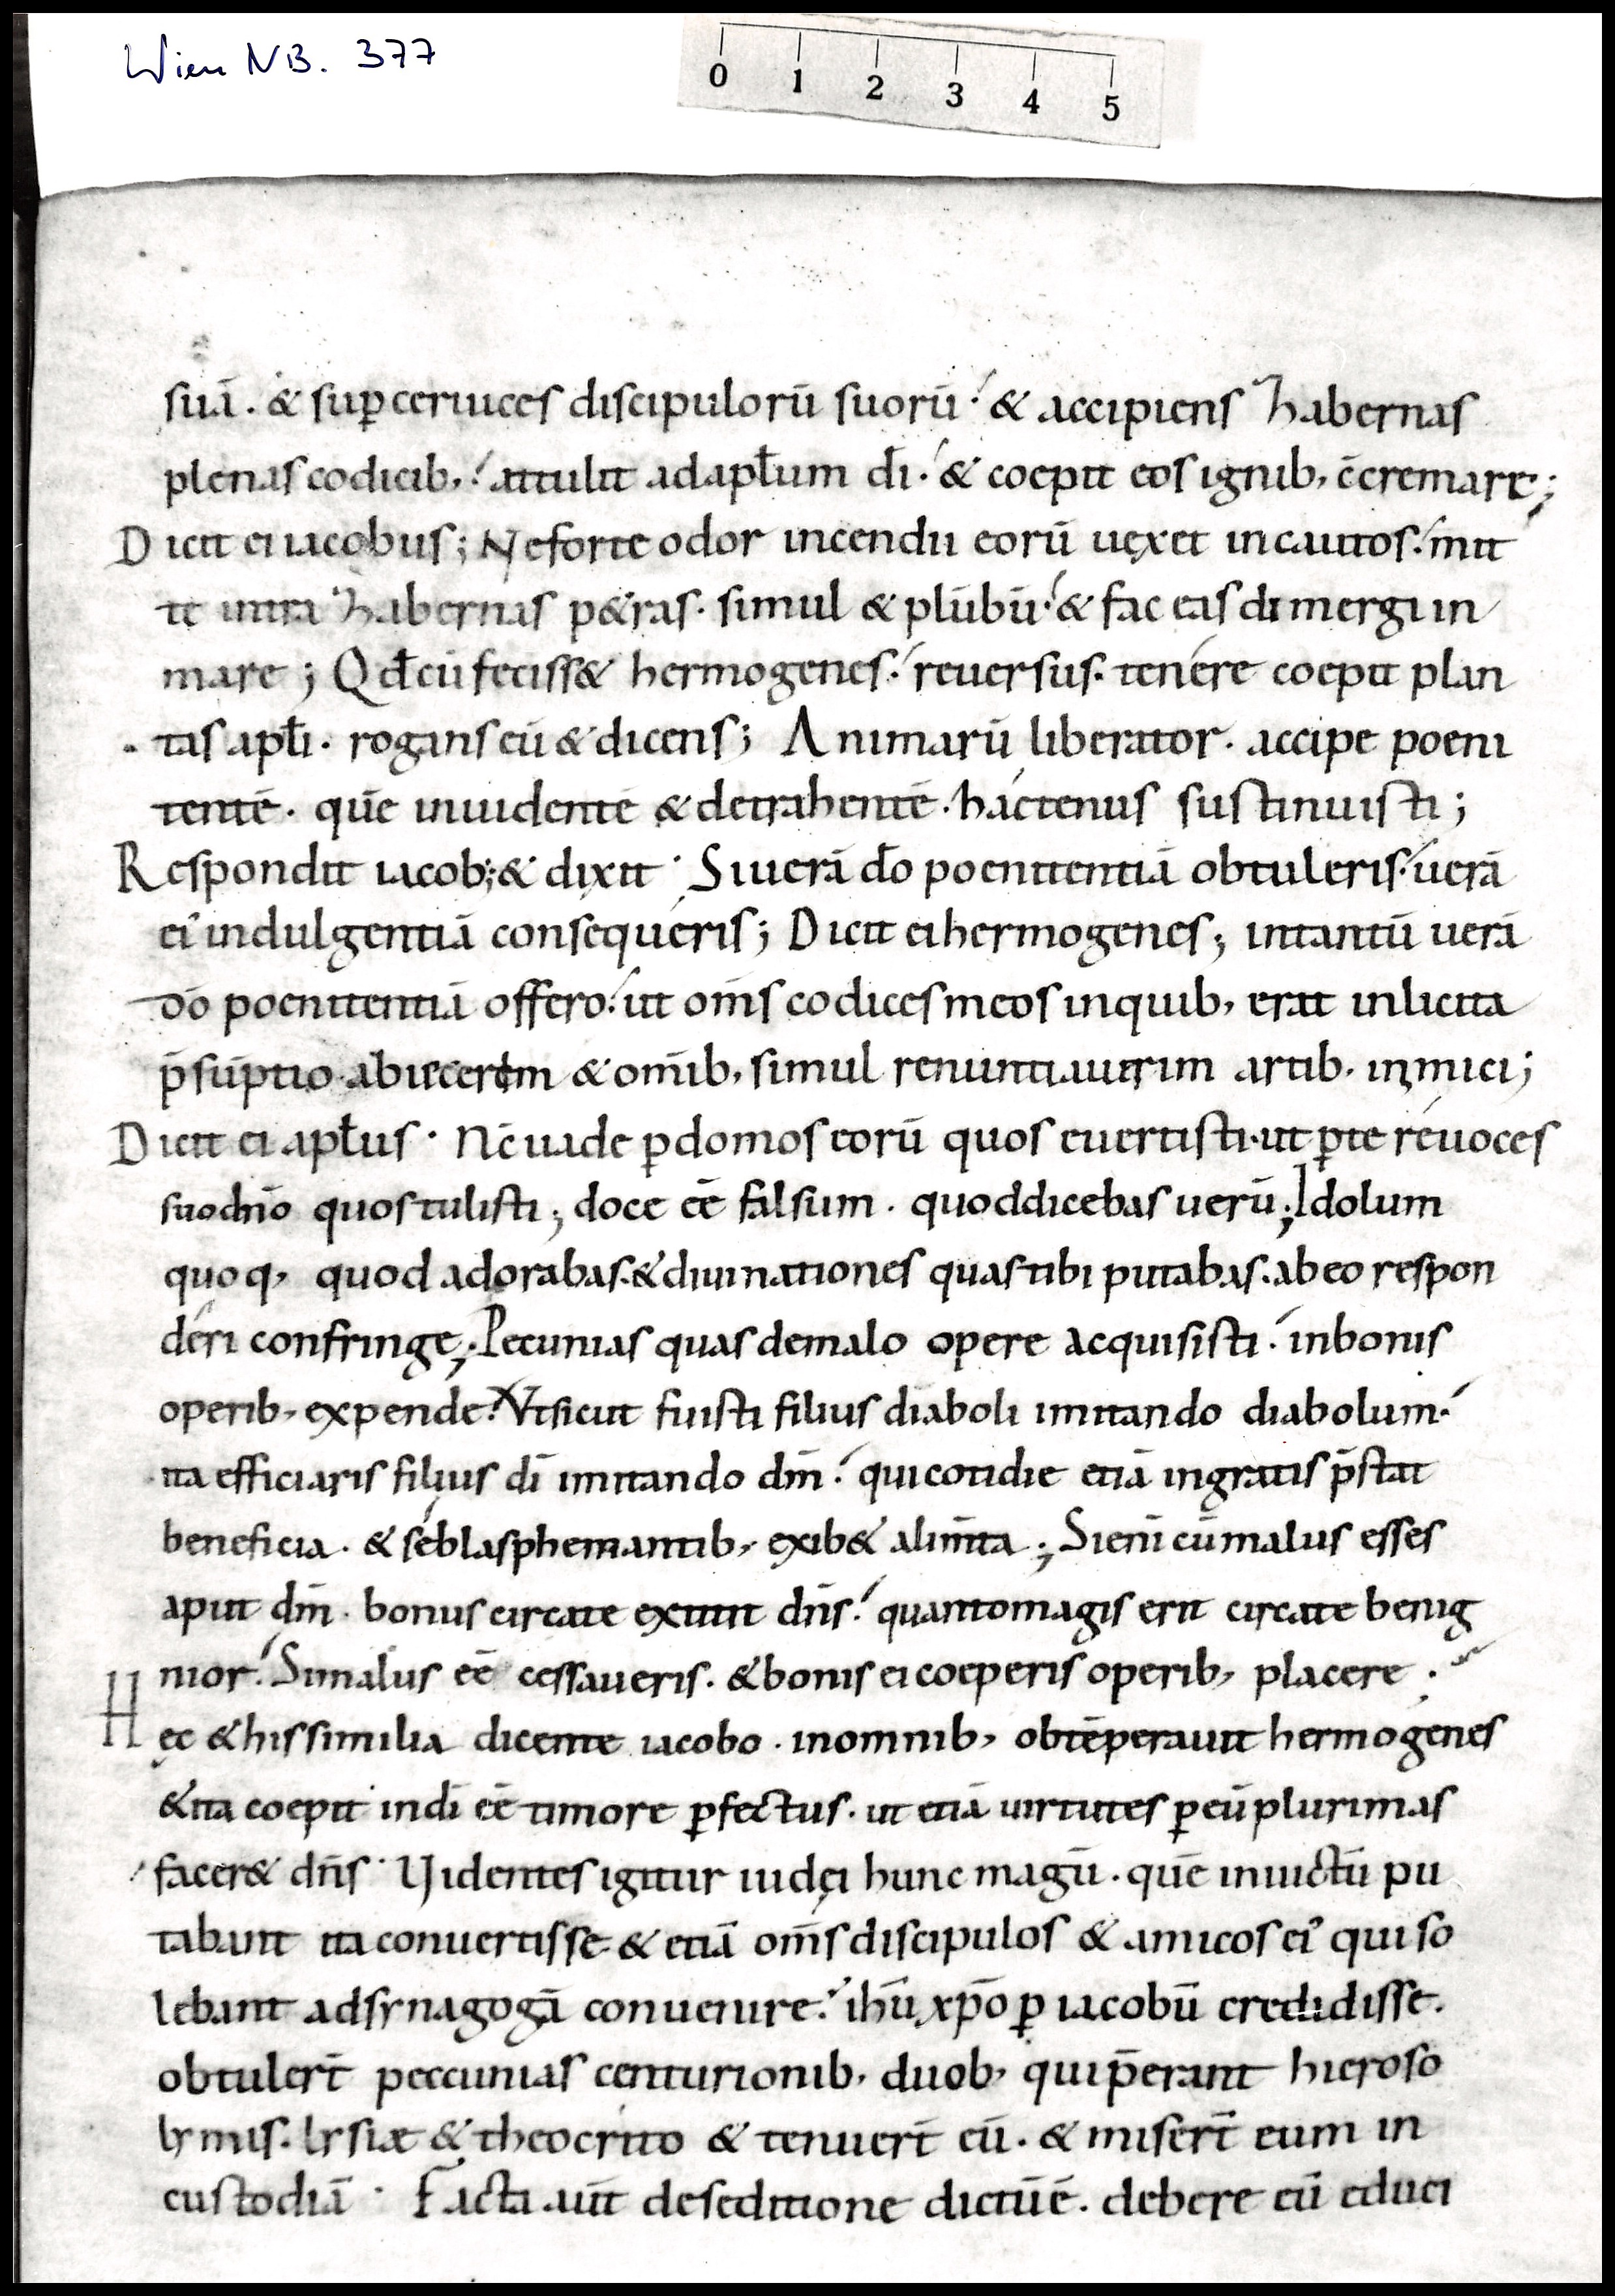 Wien NB. 377
0 1 2 3 4 5
suā. & suꝑ ceruices discipulorū suorū. & accipiens habernas
plenas codicib, attulit ad apłum dī. & coepit eos ignib, c̄cremare;
Dicit ei iacobus; Ne forte odor incendii eorū uexet incautos. mit
te intra habernas p&ras. simul & plūbū. & fac eas dimergi in
mare; Qđ cū feciss& hermogenes. reuersus. tenere coepit plan
tas apłi. rogans eū & dicens; Animarū liberator. accipe poeni
tentē. quē inuidentē & detrahentē. hactenus sustinuisti;
Respondit iacob; & dixit. Si uerā dō poenitentiā obtuleris. uerā
ei᾽ indulgentiā consequeris; Dicit ei hermogenes; intantū uerā
dō poenitentiā offero. ut om̄s codices meos in quib, erat inlicita
p̄sūptio. abiecerim & om̄ib, simul renuntiauerim artib. inimici;
Dicit ei apłus. Nc̄ uade ꝑ domos eorū quos euertisti. ut ꝑ te reuoces
suo dn̄o quos tulisti; doce eē falsum. quod dicebas uerū; Idolum
quoq, quod adorabas. & diuinationes quas tibi putabas. ab eo respon
deri confringe; Pecunias quas de malo opere acquisisti. in bonis
operib, expende. Vt sicut fuisti filius diaboli imitando diabolum.
ita efficiaris filius dī imitando dm̄. qui cotidie etiā ingratis p̄stat
beneficia. & se blasphemantib, exib& alim̄ta; Si eni᷄ cū malus esses
aput dm̄. bonus circa te extitit dn̄s. quanto magis erit circa te benig
nior. Si malus eē cessaueris. & bonis ei coeperis operib, placere;
Hęc & his similia dicente iacobo. in omnib, obtēperauit hermogenes
& ita coepit in dī eē timore ꝑfectus. ut etiā uirtutes ꝑ eū plurimas
facer& dn̄s. Uidentes igitur iudęi hunc magū. quē inuictū pu
tabant ita conuertisse & etiā om̄s discipulos & amicos ei᾽ qui so
lebant ad synagogā conuenire. ihū xp̄o ꝑ iacobū credidisse.
obtulerī peccunias centurionib, duob, qui p̄erant hieroso
lymis. lysiæ & theocrito & tenuerī eū. & miserī eum in
custodiā. Facta aūt de seditione dictū ē. debere eū educi